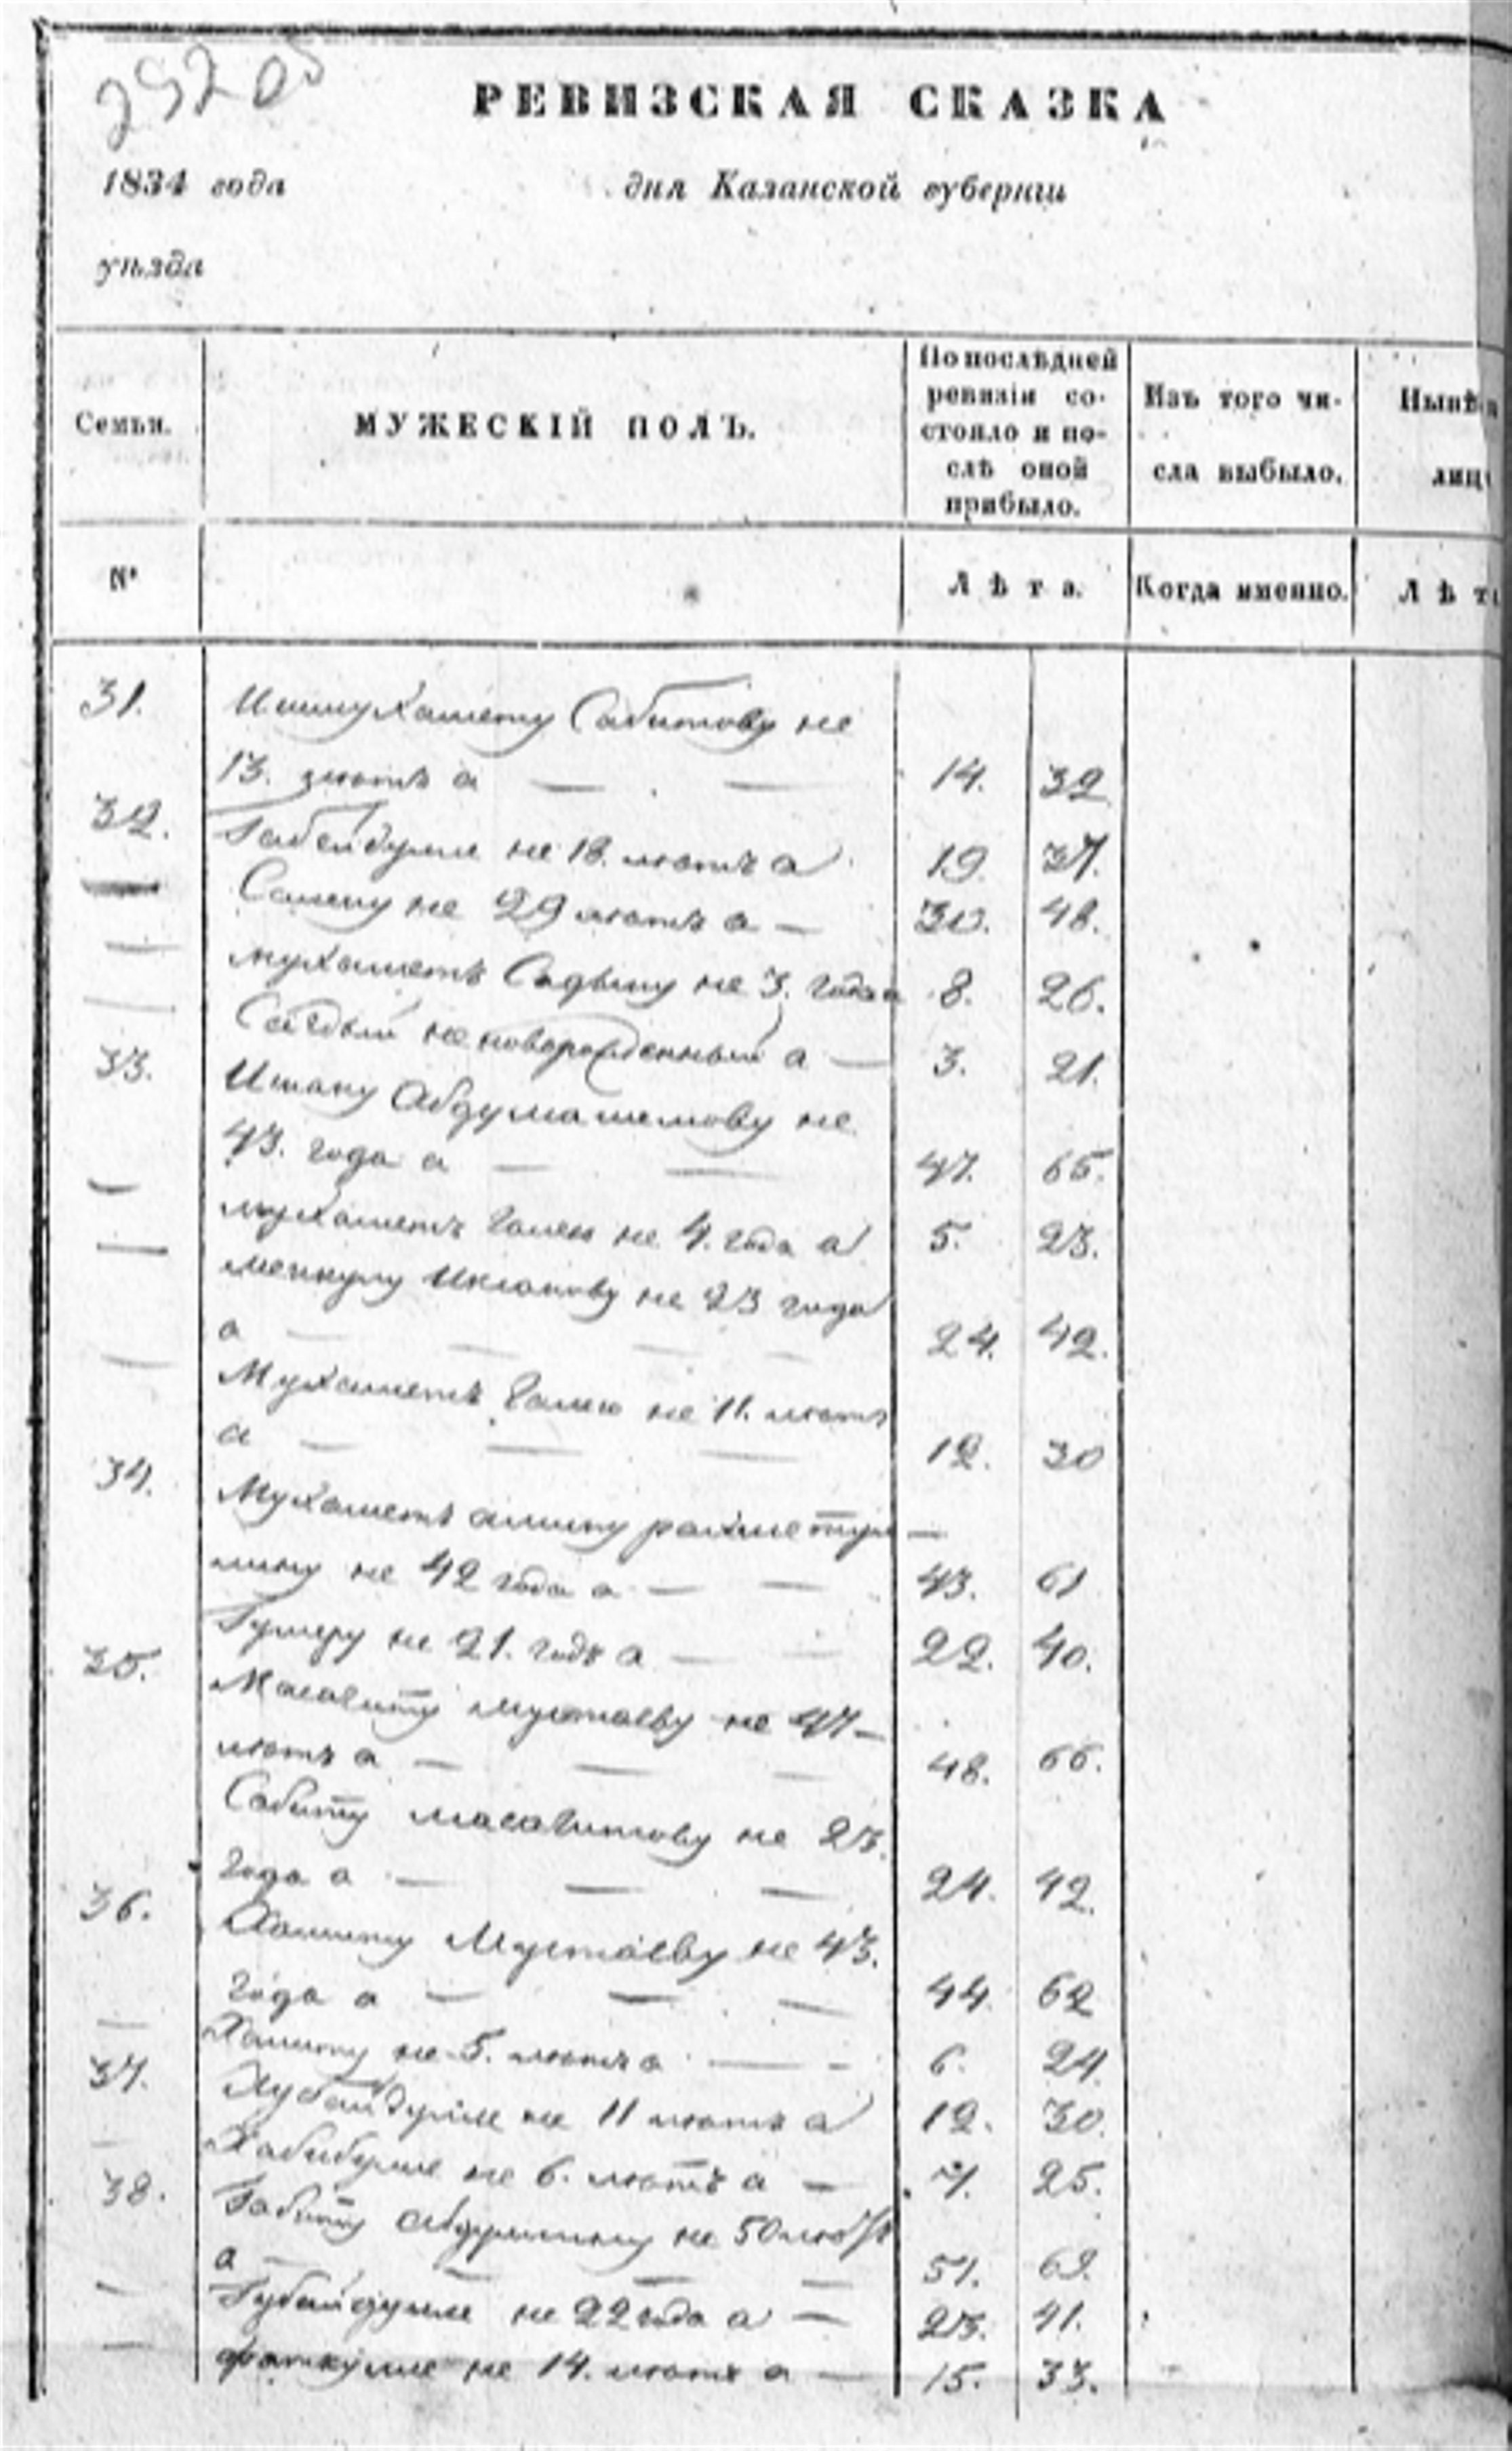 252 об
РЕВИЗСКАЯ СКАЗКА
1834 года дня Казанской губернии
уѣзда
Семьи. МУЖЕСКІЙ ПОЛЪ. По послѣдней Изъ того чи- Нынѣ
ревизіи со-
стояло и по- сла выбыло. лиц
слѣ оной
прибыло.
№ Лѣта. Когда именно. Лѣт
31. Ишмухамету Сабитову не
13. лѣтъ а — — 14. 32
32. Габейдулле не 18. лѣтъ а 19. 37.
— Салему не 29 лѣтъ а — 30. 48.
— мухаметъ Садыку не 3. года а 8. 26.
— не новорожденный а — 3. 21.
33. Исхаку не
43. года а — — 47. 65.
— мухаметъ Галею не 4. года а 5. 23.
— не 23 года
а — — — — 24. 42.
— Мухаметъ Галею не 11. лѣтъ
а — — — 12. 30
34. Мухаметъ амину рахметул —
лину не 42 года а — — 43. 61
Гумеру не 21. года а — — 22. 40.
35. Масагиту мустаеву не 47 —
лѣтъ а — — — 48. 66.
Сабиту масагитову не 23.
года а — — — 24. 42.
36. Хамиту Мустаеву не 43.
года а — — — 44. 62
— Халиту не 5. лѣтъ а — - 6. 24.
37. Хубайдулле не 11 лѣтъ а 12. 30.
— Хабибулле не 6. лѣтъ а — 7. 25.
38. Габиту Абдуллину не 50 лѣтъ
а — — — — 51. 69.
— Губайдулле не 22 года а — 23. 41.
— фаткулле не 14. лѣтъ а — 15. 33.